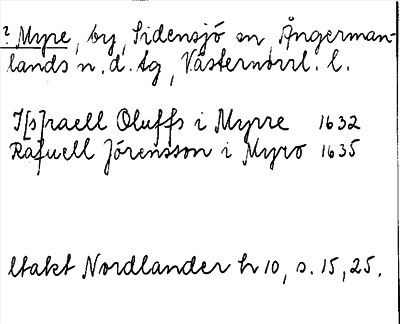 ? Myre, by, Sidensjö sn, Ångerman-
lands n. d. tg, Västernorrl. l.
I[s]raell Oluffs i Myrre 1632
Rafuell Jörensson i Myro 1635
ltakt Nordlander h 10, s. 15, 25.